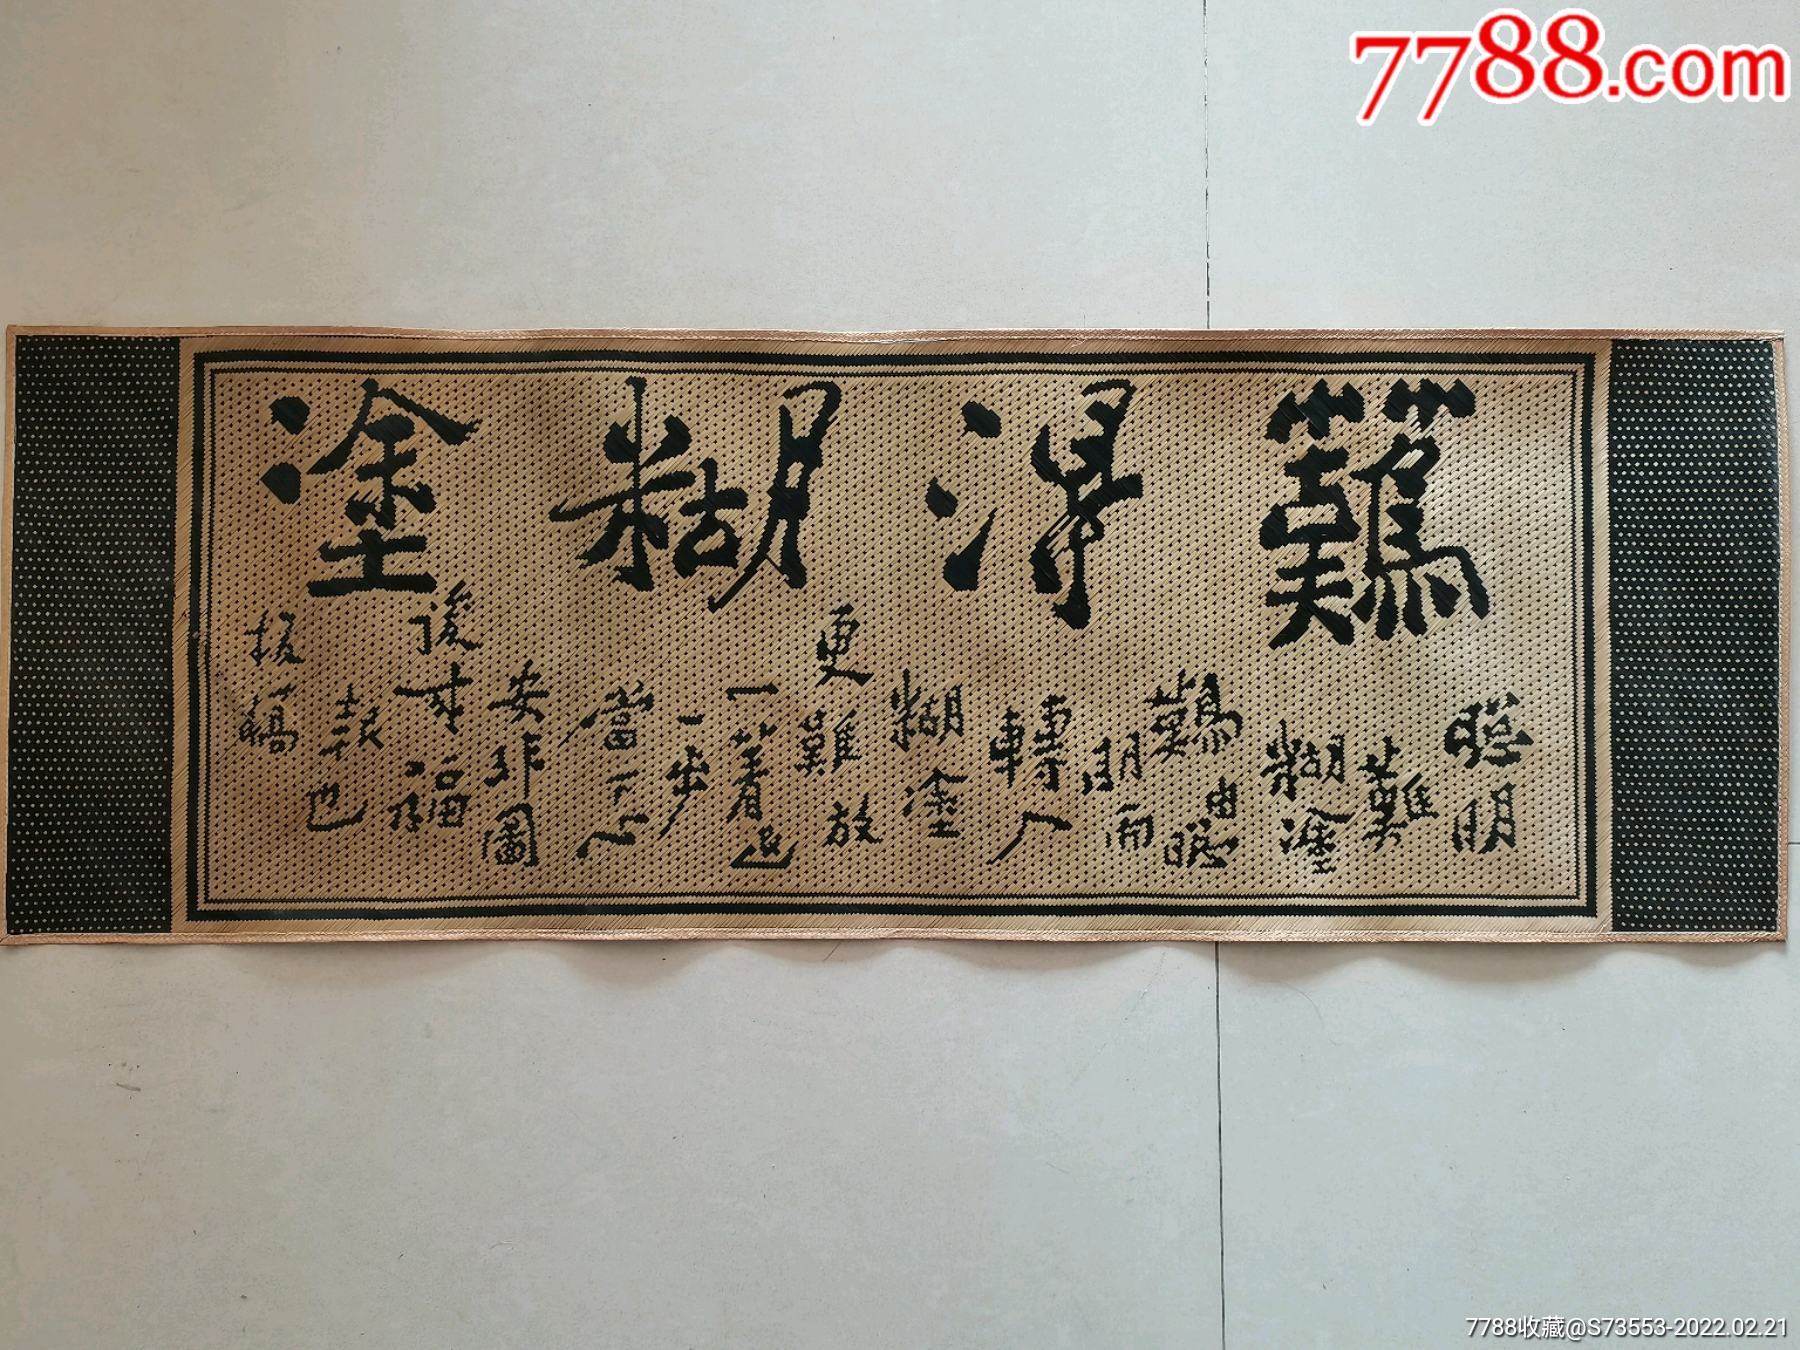 7788.com
難得糊塗
聰明
難
糊塗
難由聰
明而
轉入
糊塗
更難放
一著退
一步
當下心
安非圖
後来福
報也
板橋
7788收藏@S73553-2022.02.21